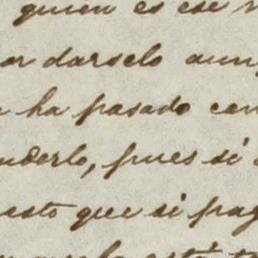 quien es ese
or darselo aun
ha pasado con
nderlo, pues si
esto que si pag
está